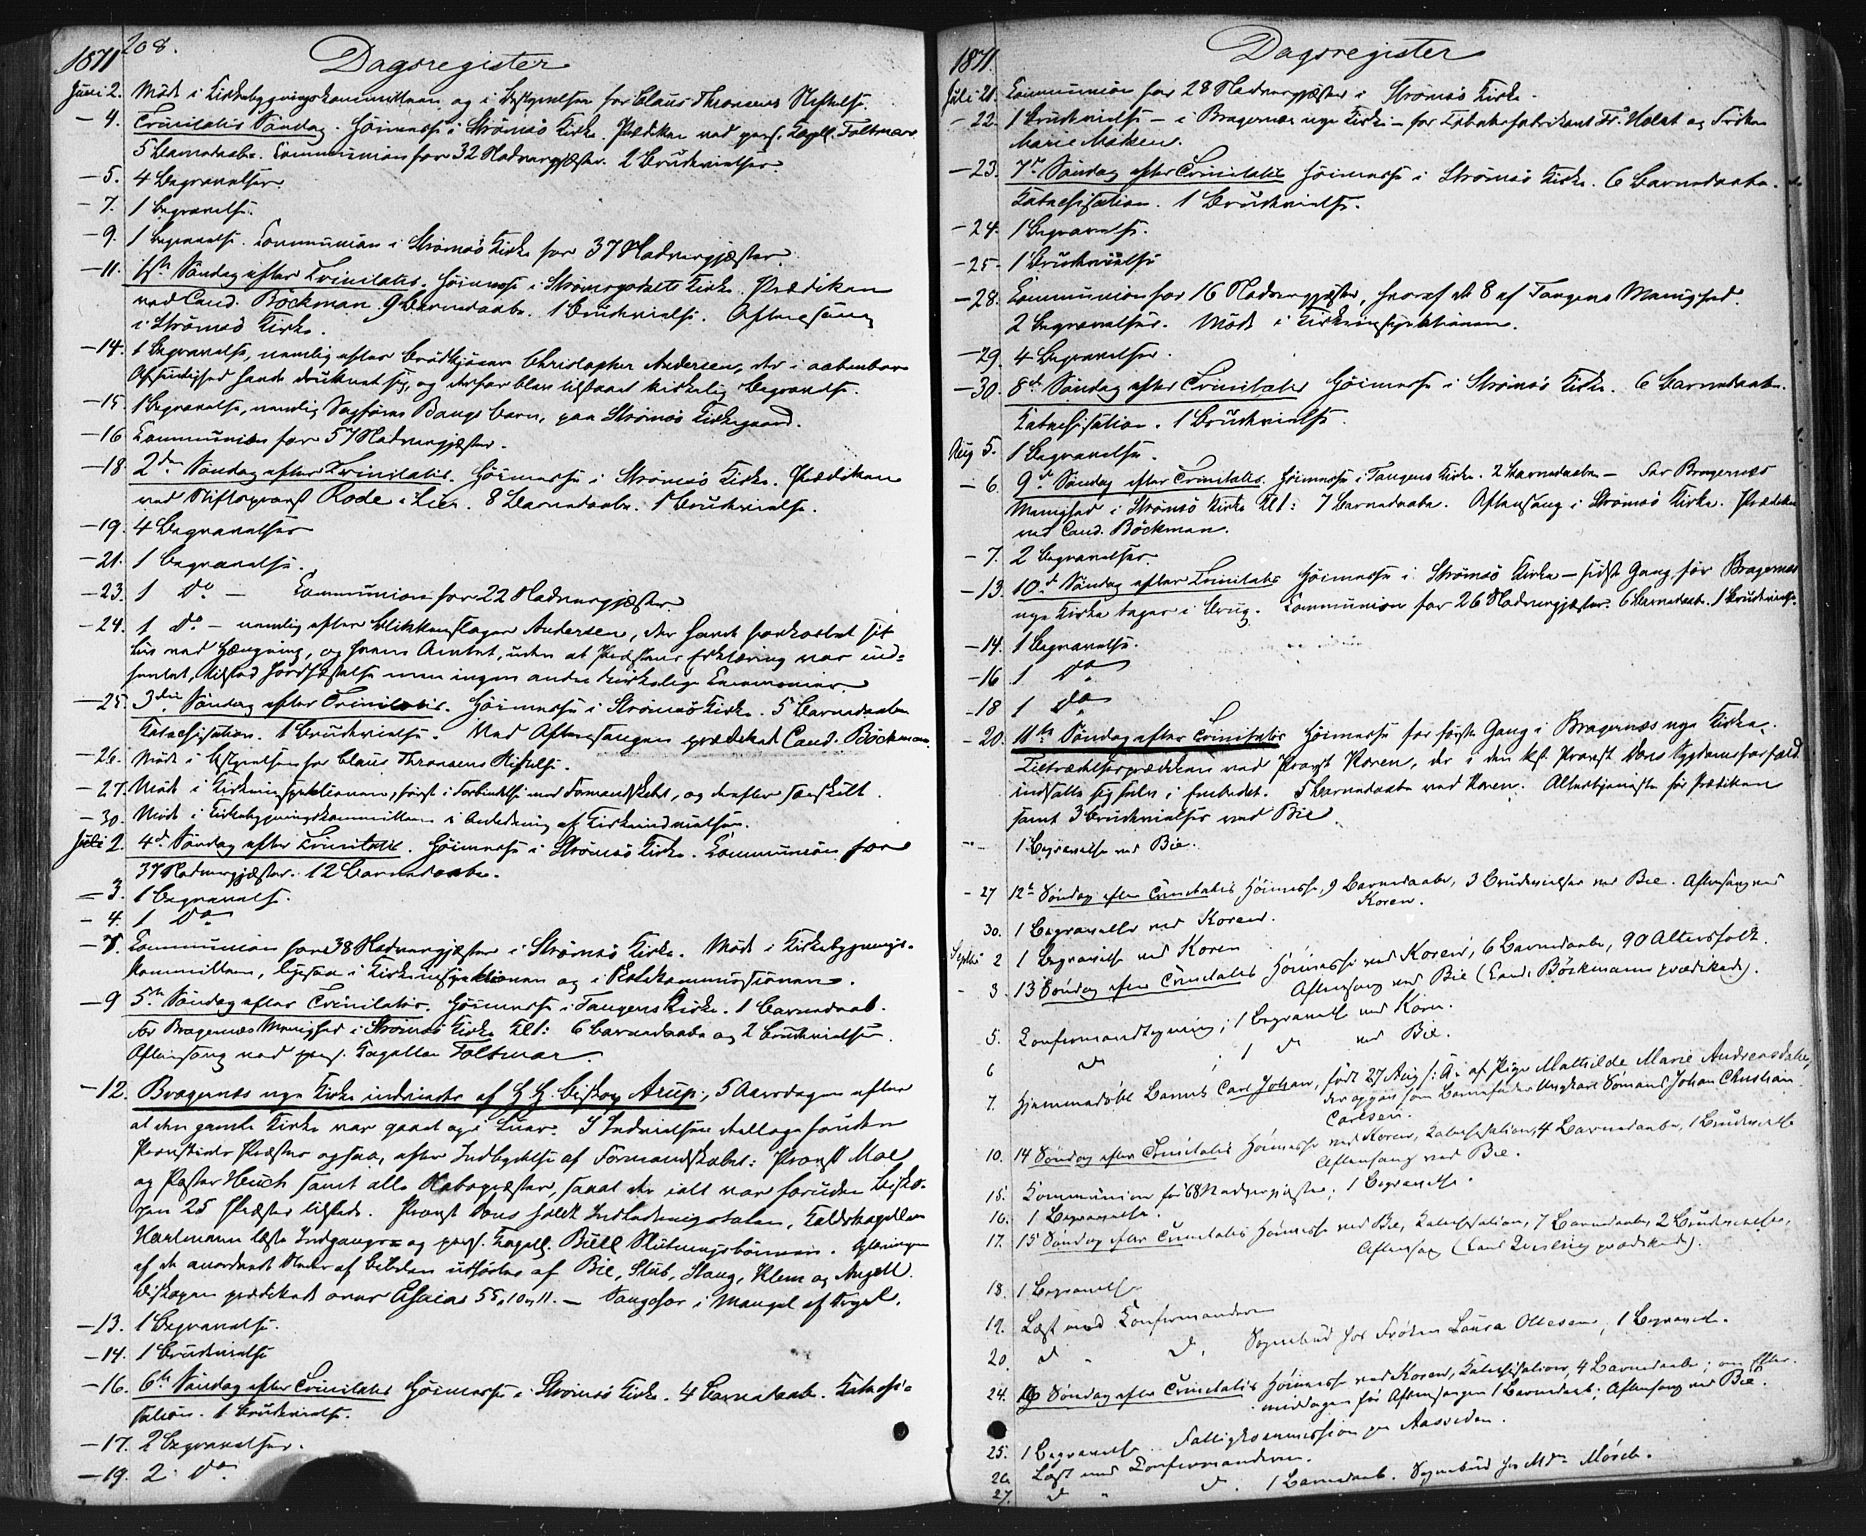 1871 208. Dagsregister
Juni 2. Møde i Kirkebygningskommitteen og i Bestyrelsen for Claus Thranes Stiftelse.
— 4. Trinitatis Søndag. Höimesse i Strømsö Kirke. Prædiken ved pers. Kapell. Foltmar
5 Barnedaabe. Communion for 32 Nadvergjæster. 2 Brudevielser.
— 5. 4 Begravelser
— 7. 1 Begravelse.
— 9. 1 Begravelse. Communion i Strømsö Kirke for 37 Nadvergjæster.
— 11. 1ste Söndag efter Trinitatis. Höimesse i Strømsgodsets Kirke. Prædiken
ved Cand. Böckman. 9 Barnedaabe. 1 Brudevielse. Aftensang
i Strömsö Kirke.
— 14. 1 Begravelse, nemlig efter Christopher Andersen, der i aabenbar
havde druknet sig, og derfor blev tilstaaet kirkelig Begravelse.
— 15. 1 Begravelse, nemlig Sagförer Bangs Barn, paa Strömsö Kirkegaard.
— 16 Communion for 57 Nadvergjæster.
— 18 2den Söndag efter Trinitatis. Höimesse i Strømsö Kirke. Prædiken
ved Stiftsprovst Rode i Lier. 8 Barnedaabe. 1 Brudevielse.
— 19. 4 Begravelser
— 21. 1 Begravelse.
— 23. 1 do — Communion for 22 Nadvergjæster.
— 24. 1 do — nemlig efter Blikkenslager Andersen, der havde forkortet sit
Liv ved Hængning, og hvem Amtet, uden at Præstens Erklæring var ind=
hentet, tilstod Jordfæstelse men ingen andre kirkelige Ceremonier.
— 25. 3die Söndag efter Trinitatis. Höimesse i Strømsö Kirke. 5 Barnedaabe
Katechisation. 1 Brudevielse. Ved Aftensangen prædikede Cand. Böckman.
— 26. Møde i Bestyrelsen for Claus Thranes Stiftelse.
— 27. Møde i Kirkeinspektionen, först i Forbindelse med Formandskabet, og derefter særskilt.
— 30. Møde i Kirkebygningskommitteen i Anledning af Kirkeindvielsen.
Juli 2. 4de Söndag efter Trinitatis. Höimesse i Strømsö Kirke. Communion for
37 Nadvergjæster. 12 Barnedaabe.
— 3. 1 Begravelse.
— 4. 1 do
— 7. Communion for 38 Nadvergjæster i Strömsö Kirke. Møde i Kirkebygnings-
kommitteen, ligesaa i Kirkeinspektionen og i
— 9 5te Söndag efter Trinitatis. Höimesse i Tangens Kirke. 1 Barnedaab.
For Bragernæs Menighed i Strömsö Kirke Kl 1: 6 Barnedaabe og 2 Brudevielser.
Aftensang ved pers. Kapellan Foltmar.
— 12. Bragernæs nye Kirke indviedes af H. H. Biskop Arup, 5 Aarsdagen efter
at den gamle Kirke var gaaet op i Luer. I Indvielsen deltoge foruden
Provstiets Præster ogsaa, efter Indbydelse af Formandskabet: Provst Moe
og Pastor Heuch samt alle Nabopræster, saa at der ialt var foruden Bisko-
pen 25 Præster tilstede. Provst holdt Indledningstalen, Feldtkapellan
Hartmann læste Indgangs- og pers. Kapell. Bull Slutningsbönnen.
af de anordnede Steder af Bibelen udförtes af Bie, Stub, Klem og Angell.
Biskopen prædikede over Esaias 55, 10 og 11. — Sangchor i Mangel af Orgel.
— 13. 1 Begravelse.
— 14. 1 Brudevielse
— 16. 6te Söndag efter Trinitatis Höimesse i Strømsö Kirke. 4 Barnedaabe. Katechi-
sation. 1 Brudevielse.
— 17. 2 Begravelser.
— 19. 2 do
1871. Dagsregister
Juli 21. Communion for 28 Nadvergjæster i Strømsö Kirke.
— 22. 1 Brudevielse — i Bragernæs nye Kirke — for Tobaksfabrikant Fr. Holst og Fröken
Marie
— 23. 7de Söndag efter Trinitatis Höimesse i Strömsö Kirke. 6 Barnedaabe.
Katechisation. 1 Brudevielse.
— 24. 1 Begravelse.
— 25. 1 Brudevielse
— 28. Communion for 16 Nadvergjæster, hvoraf de 8 af Tangens Menighed.
2 Begravelser. Møde i Kirkeinspektionen.
— 29. 4 Begravelser.
— 30. 8de Söndag efter Trinitatis Höimesse i Strømsö Kirke. 6 Barnedaabe.
Katechisation. 1 Brudevielse.
Aug 5. 1 Begravelse.
— 6. 9de Söndag efter Trinitatis. Höimesse i Tangens Kirke. 2 Barnedaabe — For Bragernæs
Menighed i Strömsö Kirke Kl 1: 7 Barnedaabe. Aftensang i Strømsö Kirke. Prædiken
ved Cand. Böckman.
— 7. 2 Begravelser.
— 13. 10de Söndag efter Trinitatis Höimesse i Strömsö Kirke — sidste Gang för Bragernæs
nye Kirke tages i Brug. Communion for 26 Nadvergjæster. 6 Barnedaabe. 1 Brudevielse.
— 14. 1 Begravelse.
— 16 1 do
— 18 1 do
— 20. 11te Söndag efter Trinitatis Höimesse for förste Gang i Bragernæs nye Kirke.
Tiltrædelsesprædiken ved Provst Koren, der i den Provst Sygdomsforfald
indsatte sig selv i Embedet. 5 Barnedaabe ved Koren. Altertjeneste för Prædiken
samt 3 Brudevielser ved Bie.
— 1 Begravelse ved Bie.
— 27 12te Söndag efter Trinitatis Höimesse, 9 Barnedaabe, 3 Brudevielser ved Bie. Aftensang ved
Koren.
30. 1 Begravelse ved Koren.
Septbr 2 1 Begravelse ved Koren
- 3. 13 Söndag efter Trinitatis Höimesse ved Koren, 6 Barnedaabe, 90 Altersfolk.
Aftensang ved Bie (Cand. Böckmann prædikede).
5. Konfirmandlæsning; 1 Begravelse ved Koren.
6 do 1 do ved Bie.
7. Hjemmedöbt Barnet Carl Johan, födt 27 Aug f. A. af Pige Mathilde Marie Andreasdatter,
der opgav som Barnefader Ungkarl Sömand Johan Christian
Carlsen.
10. 14 Söndag efter Trinitatis Höimesse ved Koren, Katechisation, 4 Barnedaabe, 1 Brudevielse
Aftensang ved Bie.
15. Kommunion for 68 Nadvergjæster; 1 Begravelse.
16. 1 Begravelse.
17. 15 Söndag efter Trinitatis Höimesse ved Bie, Katechisation, 7 Barnedaabe, 2 Brudevielser,
Aftensang (Cand Quisling prædikede).
18. 1 Begravelse
19. Læst med Konfirmanderne
20. do " do, Sognebud hos Fröken Laura Ollesen, 1 Begravelse.
24. 16 Söndag efter Trinitatis Höimesse ved Koren, Katechisation, 4 Barnedaabe; om Efter-
middagen för Aftensangen 1 Barnedaab; Aftensang ved Bie.
25. 1 Begravelse. Fattigkommission paa Aassiden.
26 Læst med Konfirmanderne.
27. do " do. 1 Barnedaab. Sognebud hos Md. Mörch.